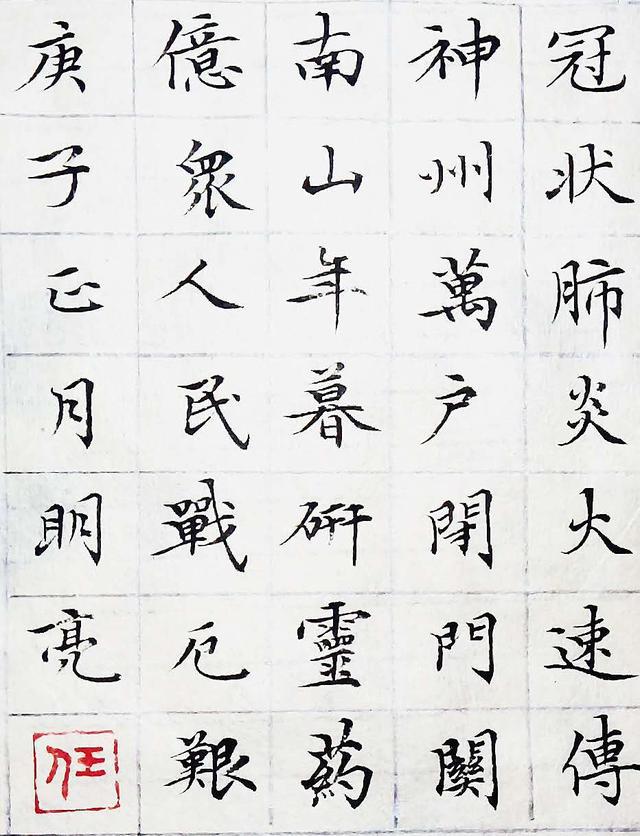 冠状肺炎火速傳
神州萬户閉門關
南山年暮研靈藥
億衆人民戰厄艱
庚子正月明亮
任